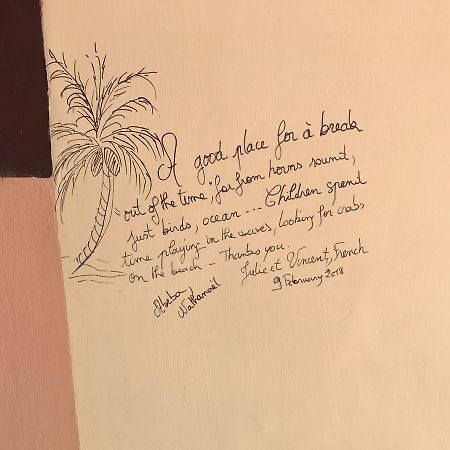 A good place for à break
"out of the time", far from horns sound,
just birds, ocean ... Children spend
time playing in the waves, looking for crabs
on the beach - Thanks you.
Julie et Vincent, French
9 February 2018
Nathanaël